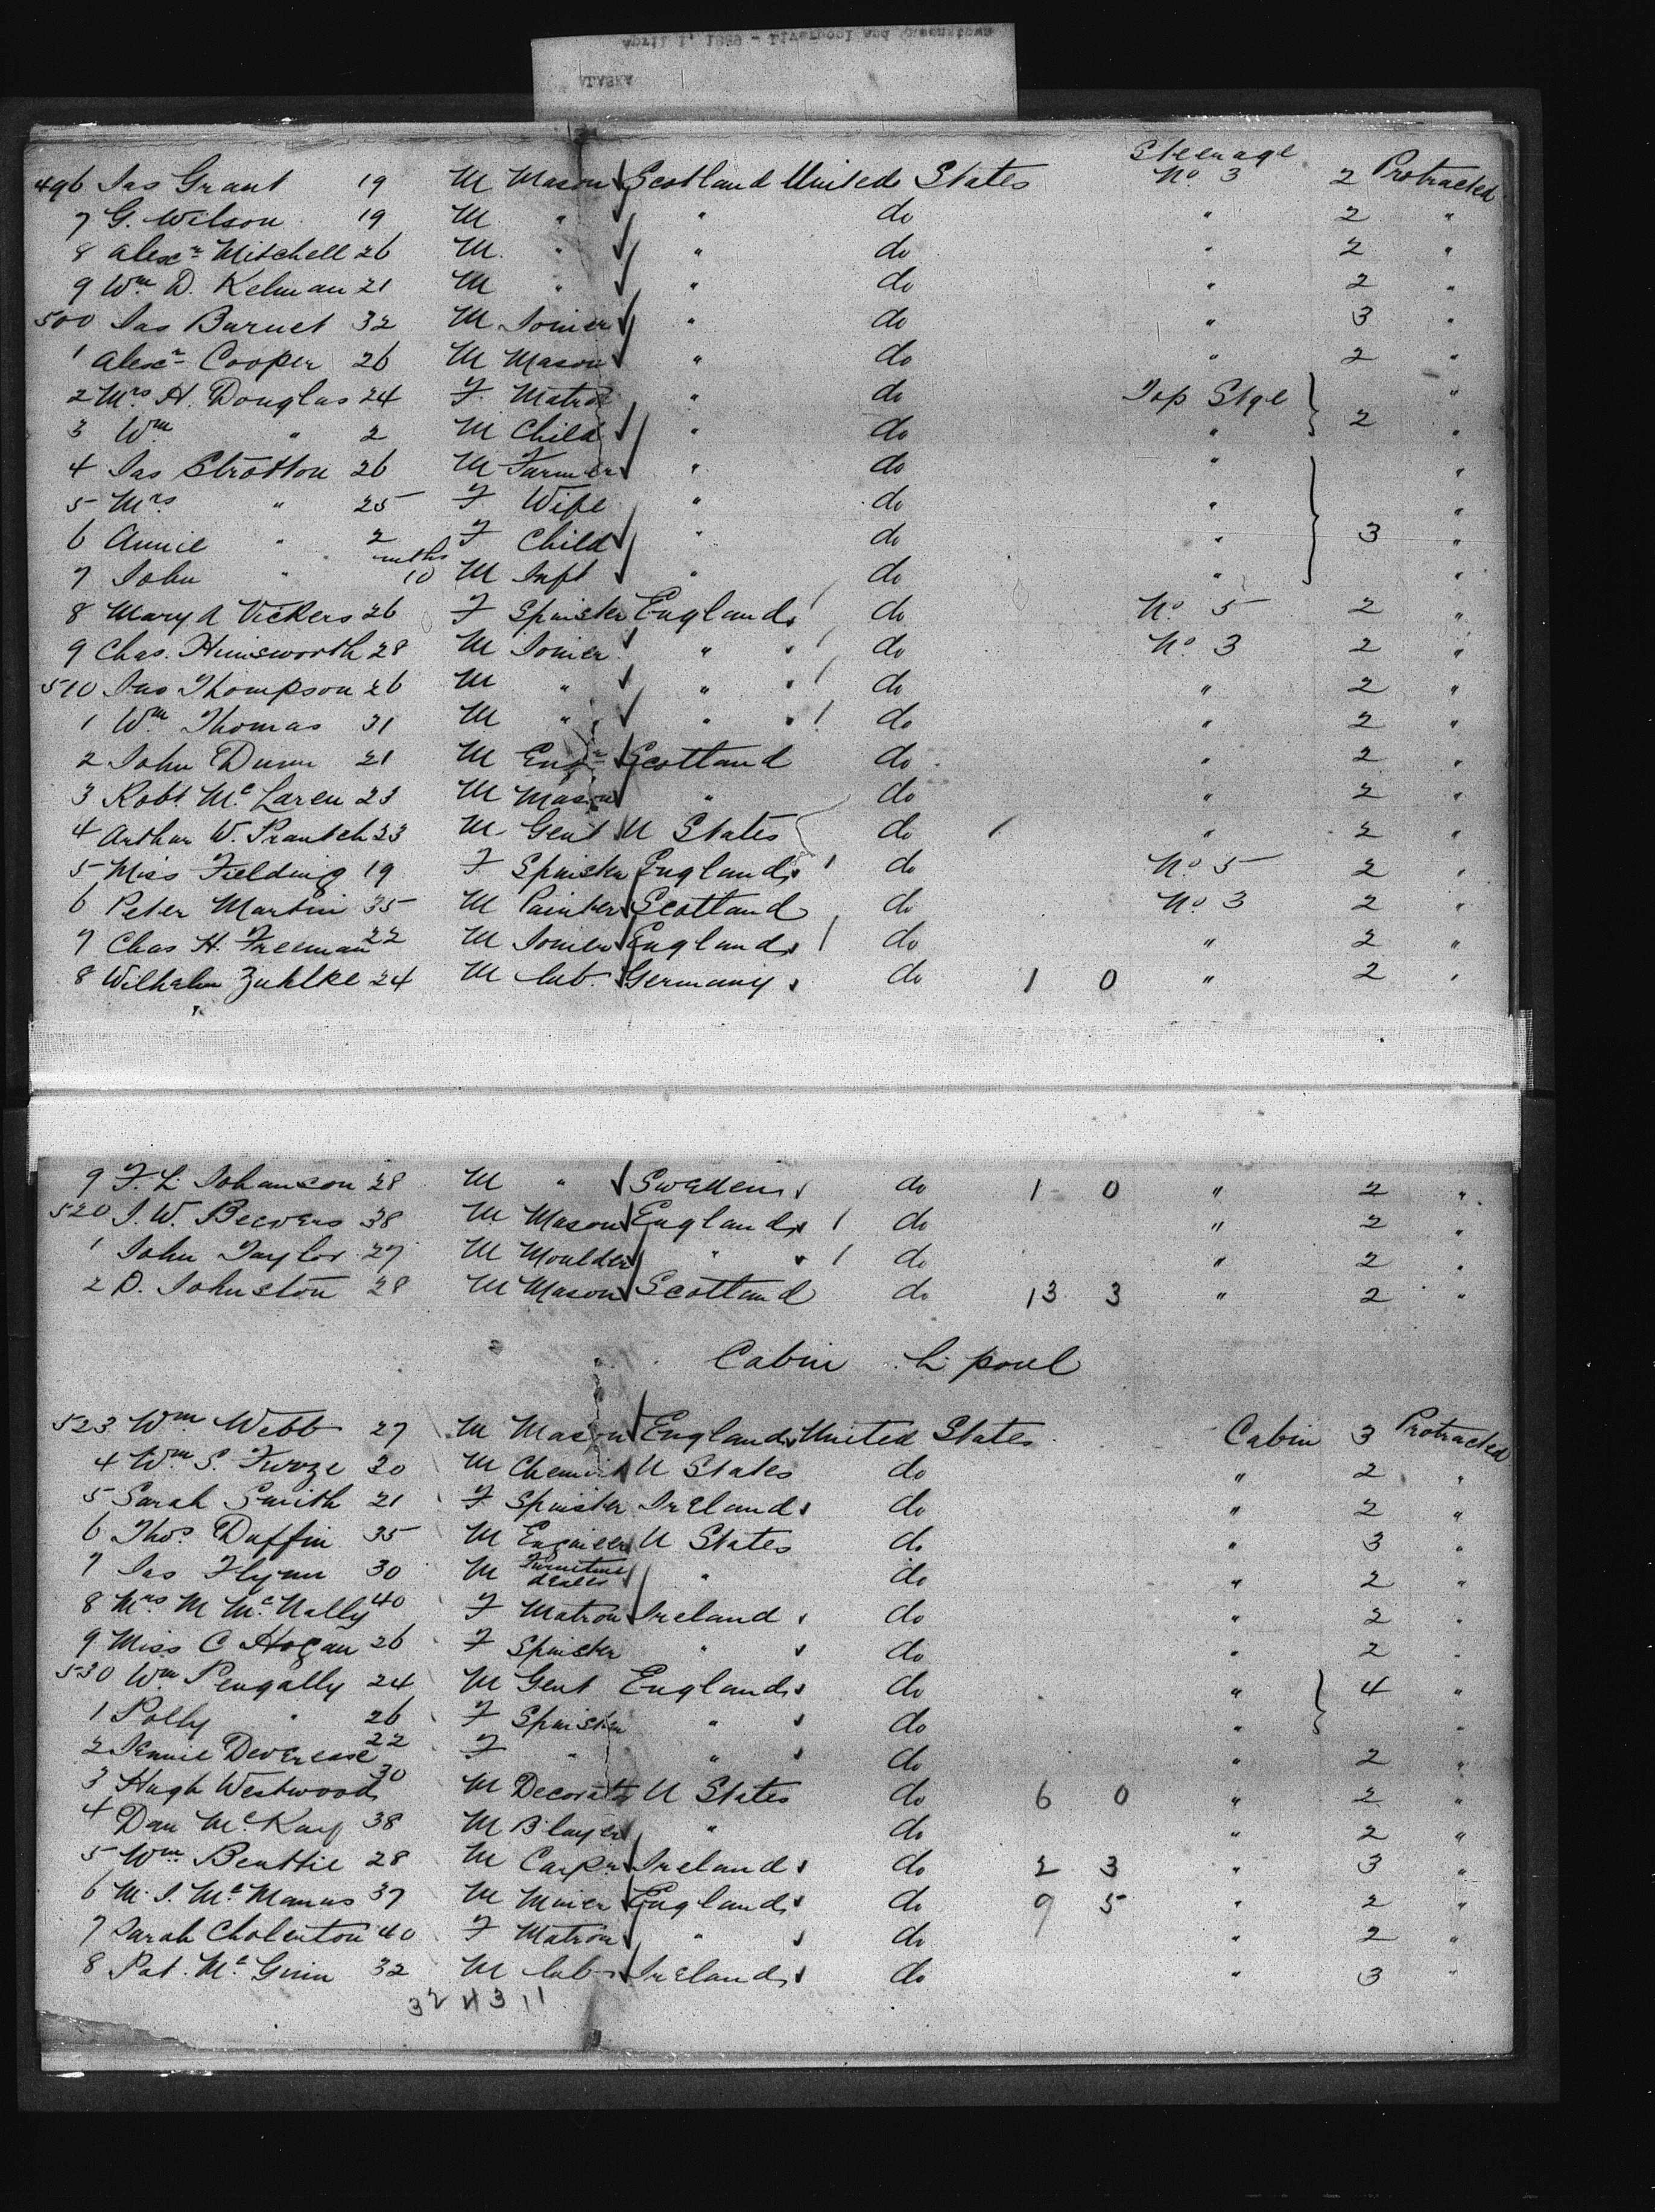 April 1, 1889 - Liverpool and Queenstown
ALASKA
Steerage
496 Jas Grant 19 M Mason Scotland United States No. 3 2 Protracted
7 G. Wilson 19 M " " do " 2 "
8 Alexr Mitchell 26 M " " do " 2 "
9 Wm D. Kelman 21 M " " do " 2 "
500 Jas Barnet 32 M Joiner " do " 3 "
1 Alexr Cooper 26 M Mason " do " 2 "
2 Mrs H. Douglas 24 F Matron " do Top Stge 2 "
3 Wm " 2 M Child " do " "
4 Jas Stratton 26 M Farmer " do " "
5 Mrs " 25 F Wife " do " "
6 Annie " 2 F Child " do " 3 "
7 John " mths 10 M Inft " do " "
8 Mary A Vickers 26 F Spinster England do No. 5 2 "
9 Chas. Hinsworth 28 M Joiner " do No. 3 2 "
510 Jas Thompson 26 M " " do " 2 "
1 Wm Thomas 31 M " " do " 2 "
2 John Dunn 21 M Engr Scotland do " 2 "
3 Robt. Mc Laren 23 M Mason " do " 2 "
4 Arthur W. Prautch 23 M Gent U States do " 2 "
5 Miss Fielding 19 F Spinster England do No. 5 2 "
6 Peter Martin 35 M Painter Scotland do No. 3 2 "
7 Chas H. Freeman 22 M Joiner England do " 2 "
8 Wilhelm Zuhlke 24 M Lab. Germany do 1 0 " 2 "
9 F. L. Johanson 28 M " Sweden do 1 0 " 2 "
520 J. W. Beevers 38 M Mason England do " 2 "
1 John Taylor 27 M Moulder " do " 2 "
2 D. Johnston 28 M Mason Scotland do 13 3 " 2 "
Cabin L.pool
523 Wm Webb 27 M Mason England United States Cabin 3 Protracted
4 Wm S. Furze 30 M Chemist U States do " 2 "
5 Sarah Smith 21 F Spinster Ireland do " 2 "
6 Thos. Duffin 35 M Engineer U States do " 3 "
7 Jas Flynn 30 M Furniture dealer " do " 2 "
8 Mrs M Mc Nally 40 F Matron Ireland do " 2 "
9 Miss C Hogan 26 F Spinster " do " 2 "
530 Wm Pengally 24 M Gent England do " 4 "
1 Polly " 26 F Spinster " do " "
2 Jennie Deverease 22 F " " do " 2 "
3 Hugh Westwood 30 M Decorator U States do 6 0 " 2 "
4 Dan Mc Kay 38 M B'layer " do " 2 "
5 Wm Beattie 28 M Carpr Ireland do 2 3 " 3 "
6 M. J. Mc Manus 37 M Miner England do 9 5 " 2 "
7 Sarah Cholerton 40 F Matron " do " 2 "
8 Pat. Mc Ginn 32 M Lab Ireland do " 3 "
32 4 3 11